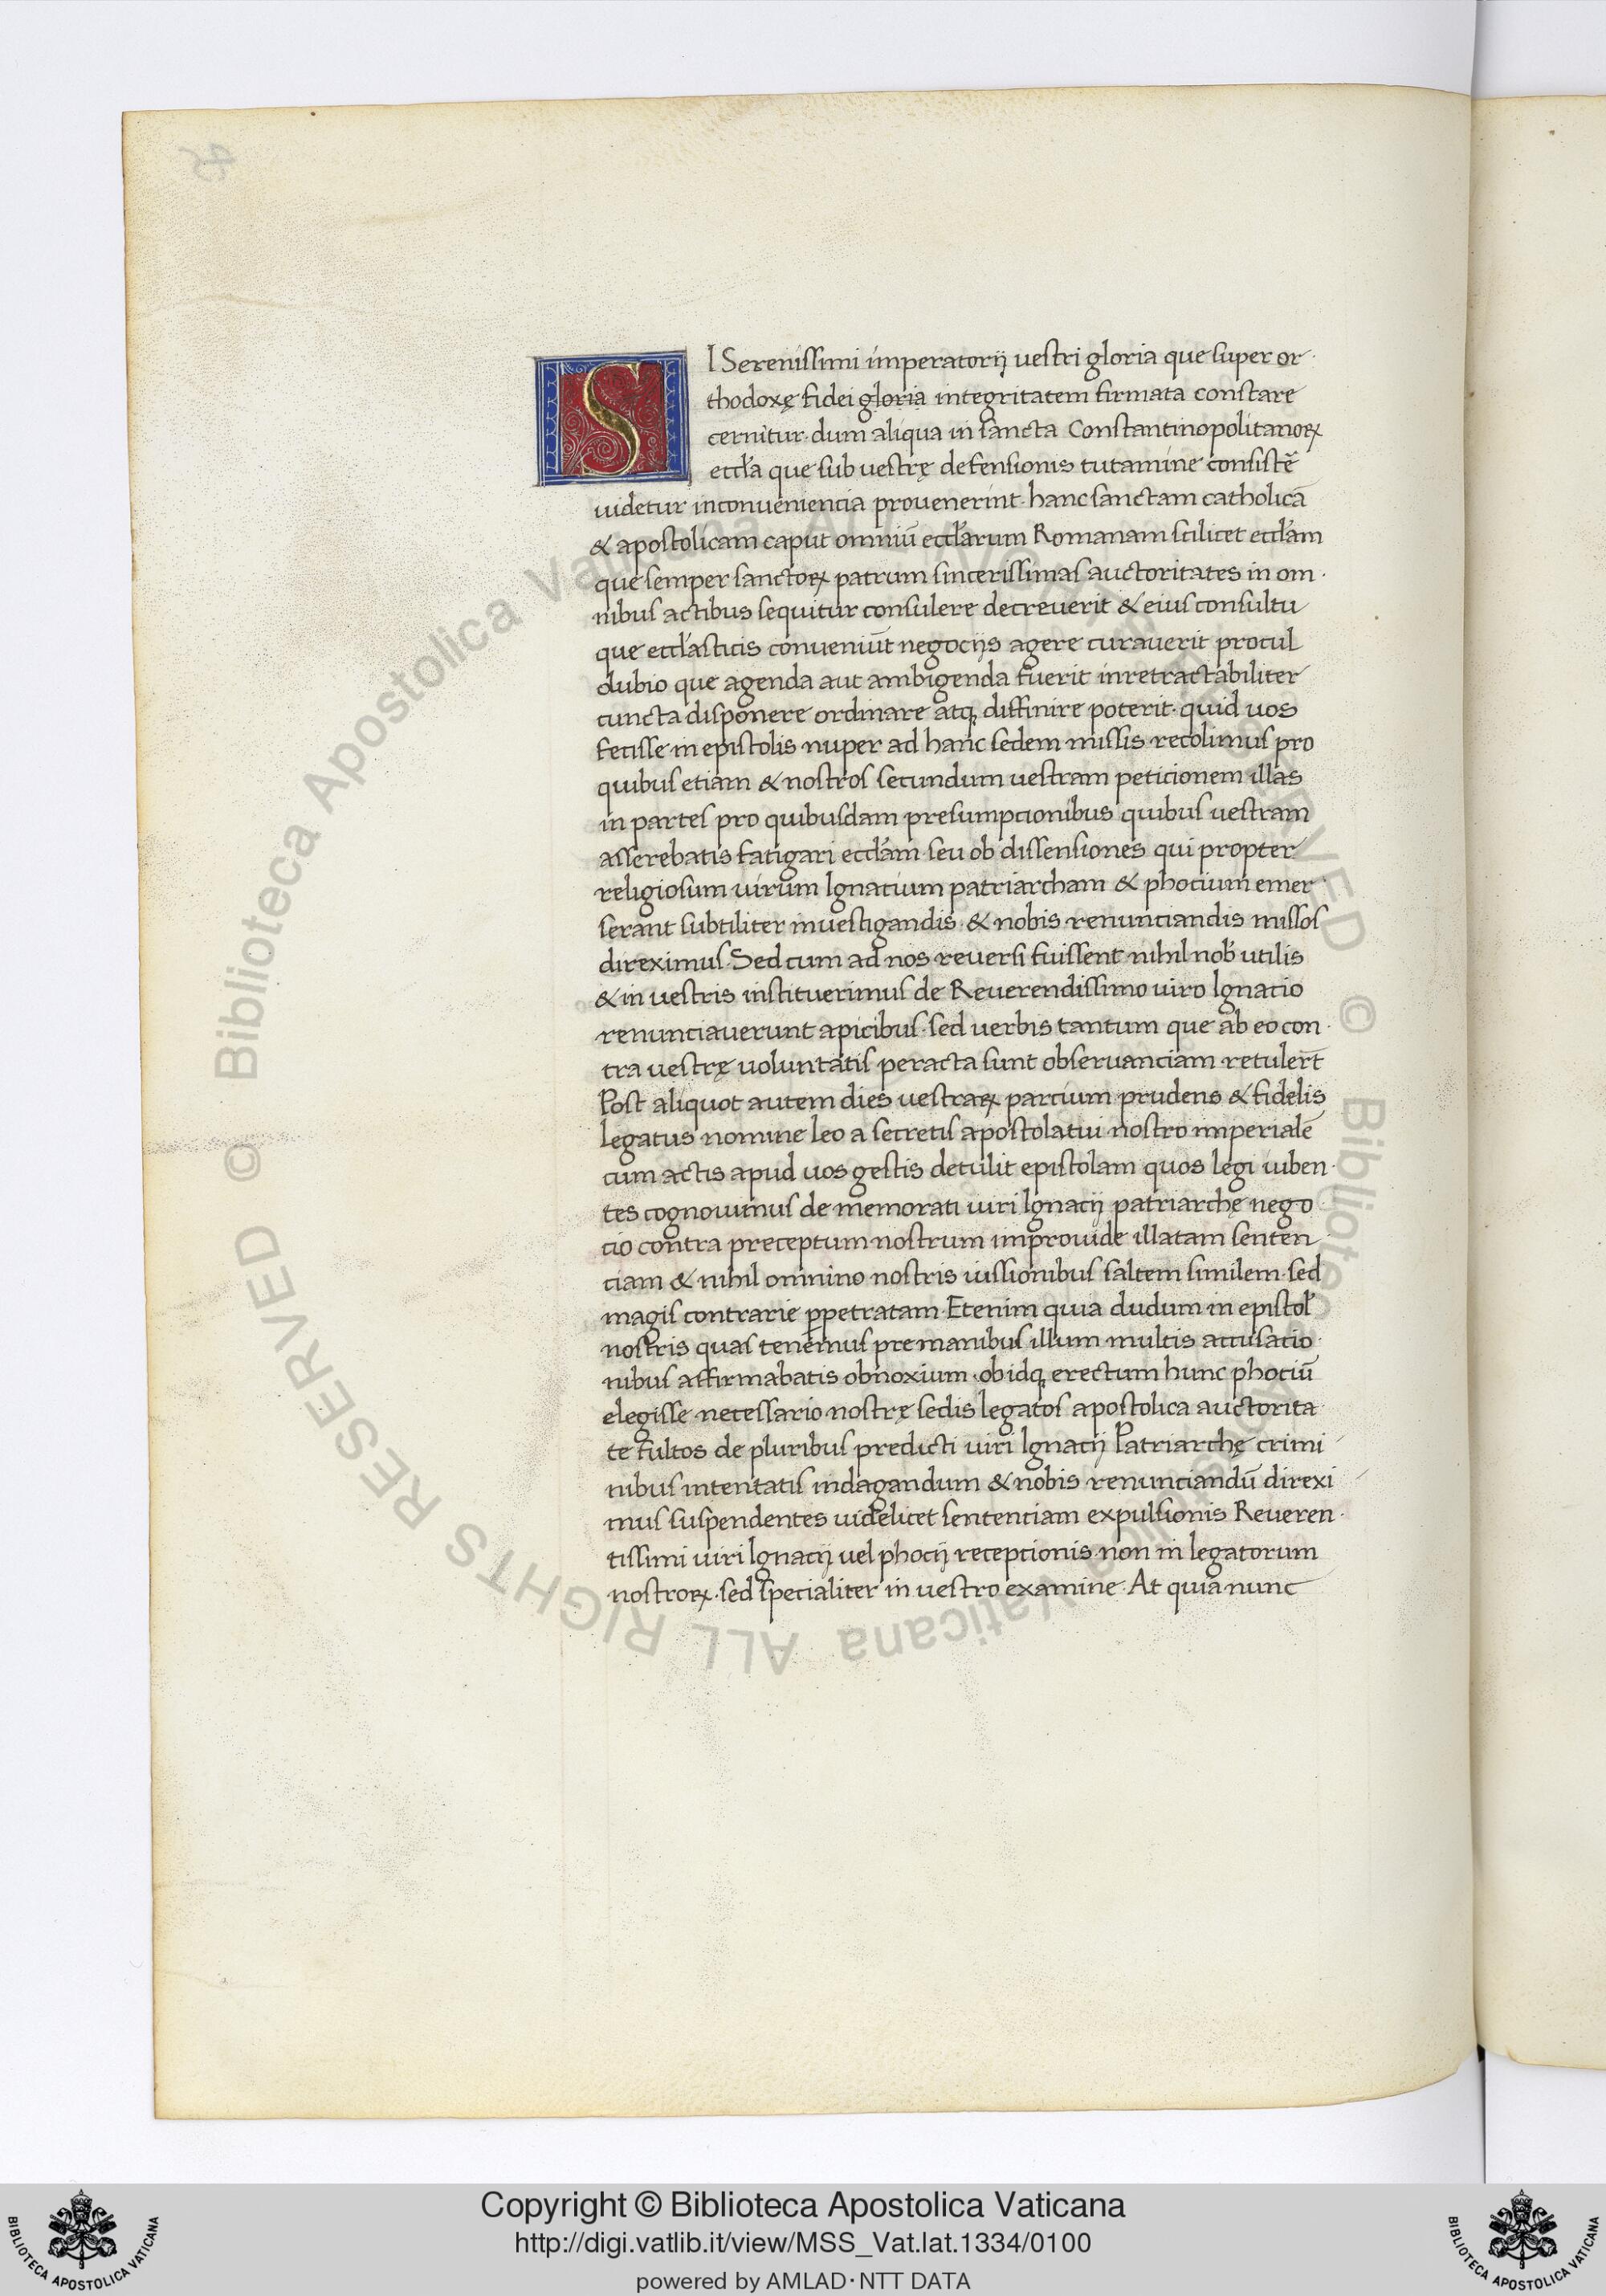 SI Serenissimi imperatorij vestri gloria que super or-
thodoxę fidei gloria integritatem firmata constare
cernitur· dum aliqua in sancta Constantinopolitanoꝝ
eccła que sub vestrę defensionis tutamine consistē
uidetur inconveniencia provenerint· hanc sanctam catholicā
& apostolicam caput omniū eccłarum Romanam scilicet eccłam
que semper sanctoꝝ patrum sincerissimas auctoritates in om-
nibus actibus sequitur consulere decreverit & eius consultu
que eccłasticis conveniūt negocijs agere curaverit procul
dubio que agenda aut ambigenda fuerit inretractabiliter
cuncta disponere ordinare atq diffinire poterit· quid uos
fecisse in epistolis nuper ad hanc sedem missis recolimus pro
quibus etiam & nostros secundum vestram peticionem illas
in partes pro quibusdam presumpcionibus quibus vestram
asserebatis fatigari eccłam seu ob dissensiones qui propter
religiosum virum Ignatium patriarcham & photium emer-
serant subtiliter investigandis & nobis renunciandis missos
direximus· Sed cum ad nos reversi fuissent nihil nob utilis
& in vestris instituerimus de Reverendissimo viro Ignatio
renunciaverunt apicibus· sed verbis tantum que ab eo con-
tra vestrę voluntatis peracta sunt observanciam retulert̄
Post aliquot autem dies vestraꝝ parcium prudens & fidelis
legatus nomine leo a secretis apostolatui nostro imperiale
cum actis apud vos gestis detulit epistolam quos legi iuben-
tes cognovimus de memorati viri Ignacij patriarchę nego
cio contra preceptum nostrum improvide illatam senten
ciam & nihil omnino nostris iussionibus saltem similem· sed
magis contrarie ꝑpetratam· Etenim quia dudum in epistoł
nostris quas tenemus pre manibus illum multis accusatio-
nibus affirmabatis obnoxium· ob idq erectum hunc photiū
elegisse necessario nostrę sedis legatos apostolica auctorita-
te fultos de pluribus predicti viri Ignacij Patriarchę crimi
nibus intentatis indagandum & nobis renunciandū direxi
mus suspendentes videlicet sentenciam expulsionis Reveren-
tissimi viri Ignacij vel photij receptionis non in legatorum
nostroꝝ· sed specialiter in vestro examine· At quia nunc
© Biblioteca Apostolica Vaticana ALL RIGHTS RESERVED © Biblioteca Apostolica Vaticana ALL RIGHTS RESERVED
Copyright © Biblioteca Apostolica Vaticana
http://digi.vatlib.it/view/MSS_Vat.lat.1334/0100
powered by AMLAD·NTT DATA
BIBLIOTECA APOSTOLICA VATICANA
BIBLIOTECA APOSTOLICA VATICANA